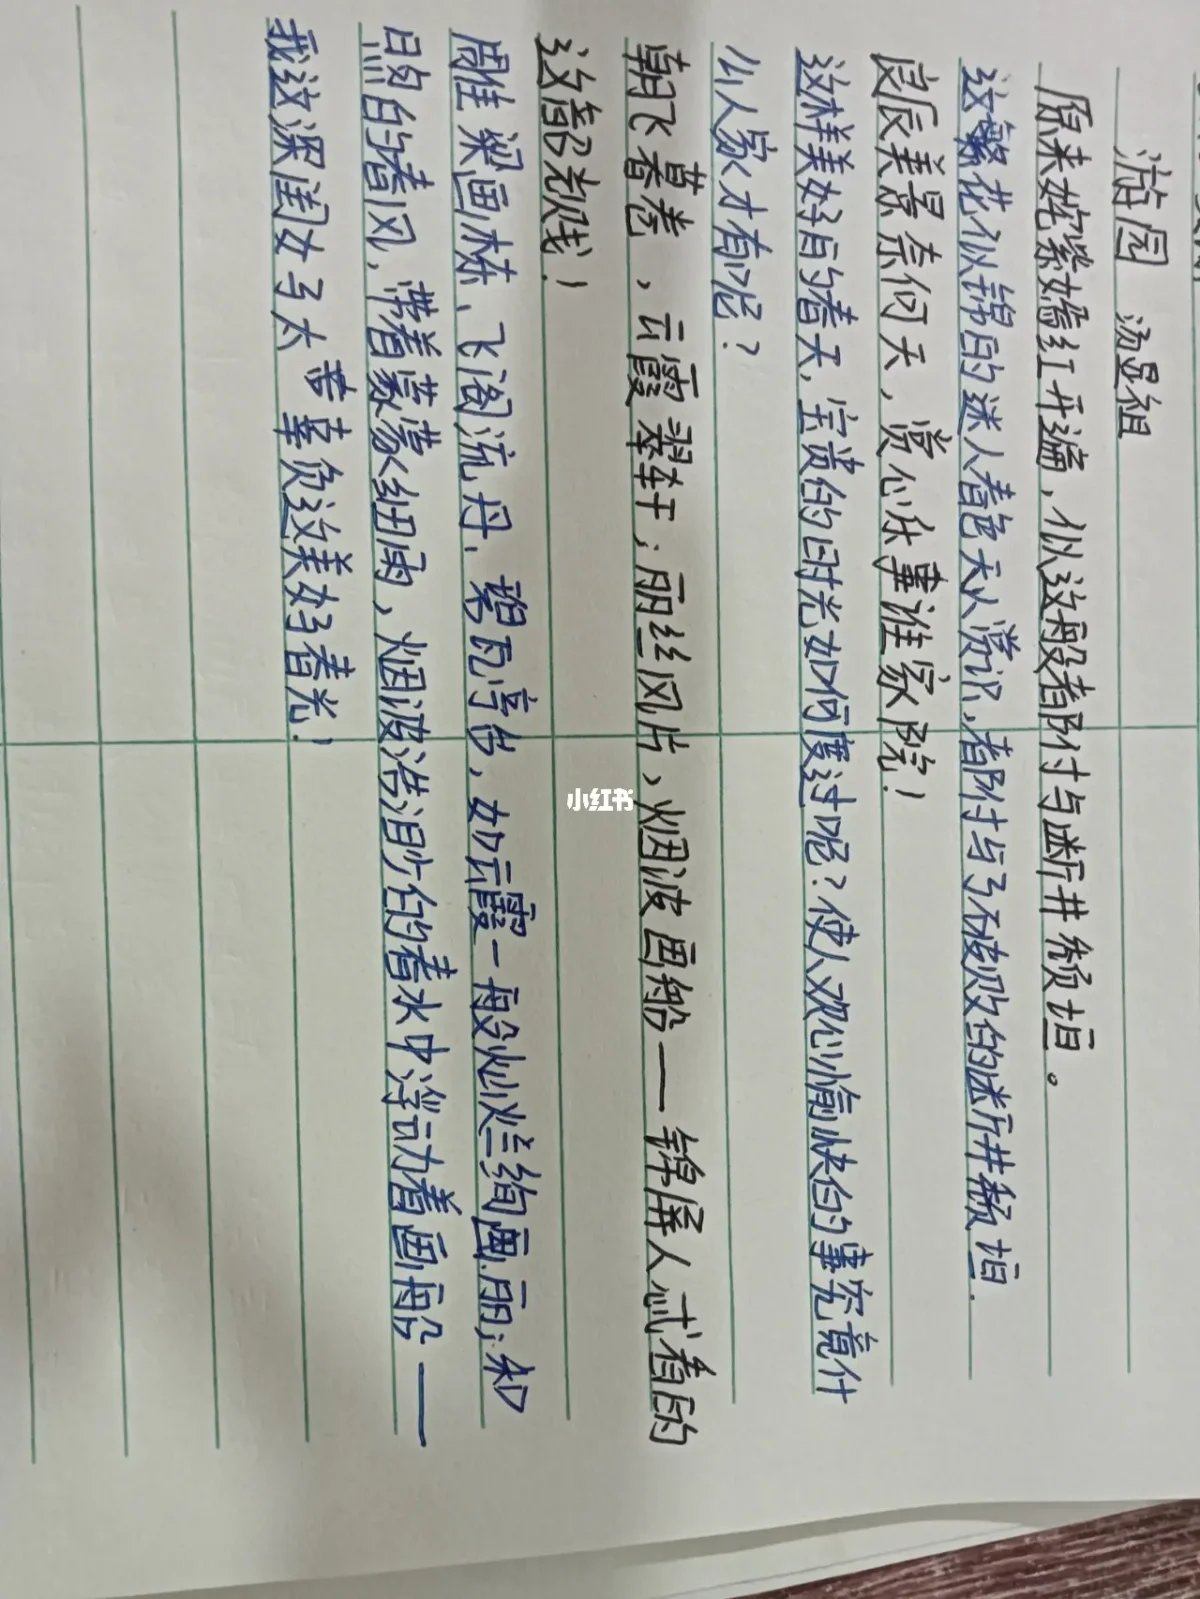 游园 汤显祖
原来姹紫嫣红开遍,似这般都付与断井颓垣。
这繁花似锦的迷人春色无人赏识,都付与了破败的断井颓垣.
良辰美景奈何天,赏心乐事谁家院!
这样美好的春天,宝贵的时光如何度过呢?使人观心愉快的事究竟什
么人家才有呢?
朝飞暮卷,云霞翠轩;雨丝风片,烟波画船——锦屏人忒看的
这韶光贱!
雕梁画栋、飞阁流丹、碧瓦亭台,如云霞一般灿烂绚丽;和
煦的春风,带着蒙蒙细雨,烟波浩渺的春水中浮动着画船——
我这深闺女子太辜负这美好春光!
小红书